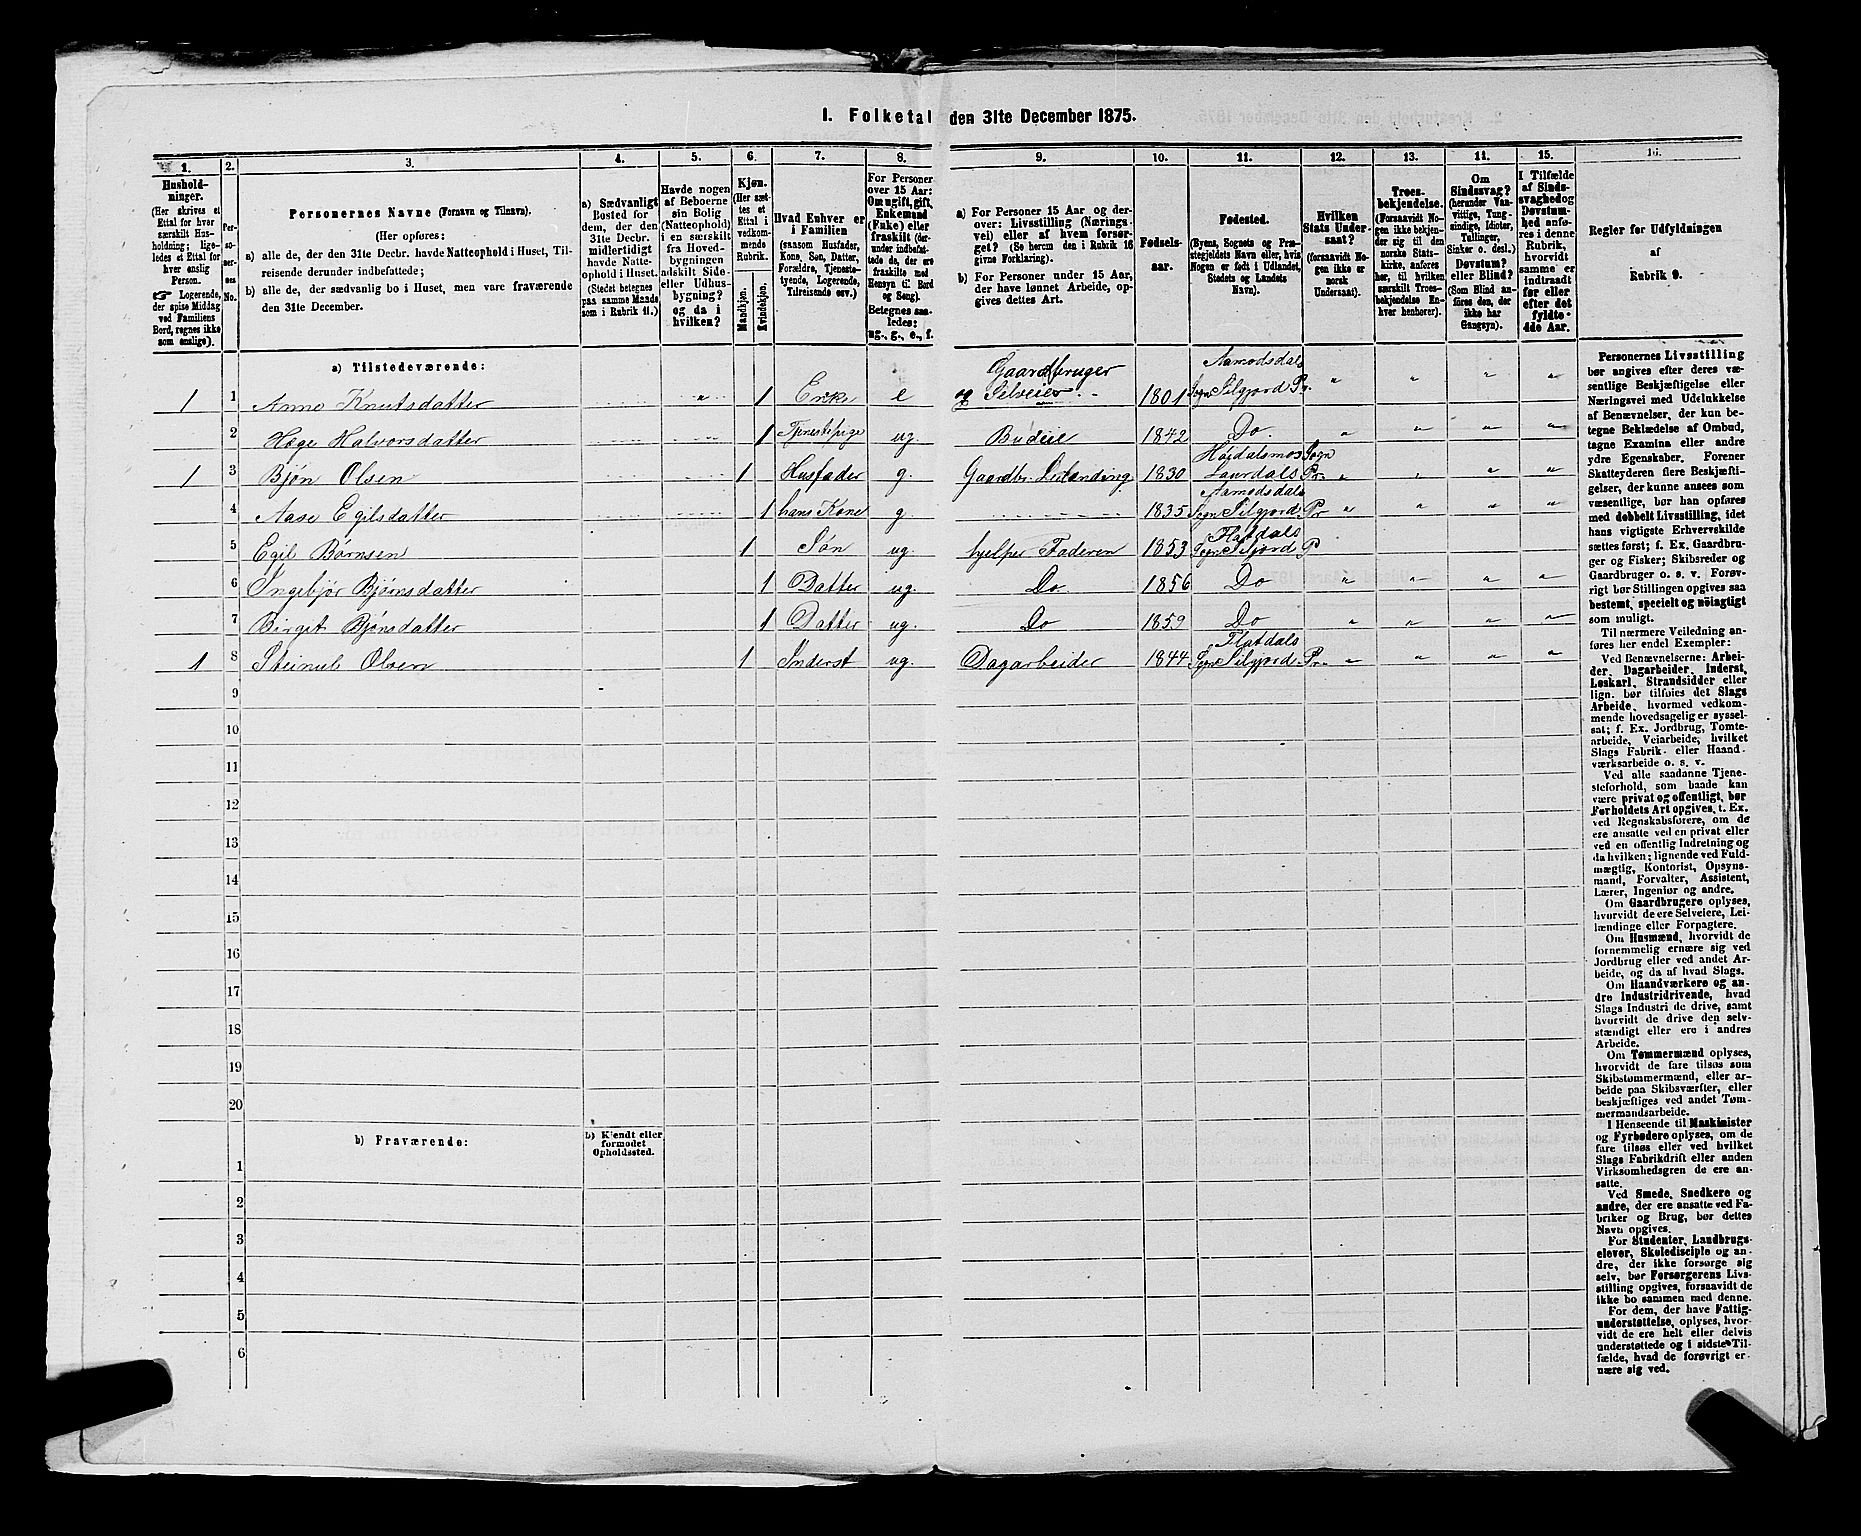 1. Folketal den 31te December 1875.
1. 2. 3. 4. 5. 6. 7. 8. 9. 10. 11. 12. 13. 14. 15. 16.
Hushold-
ninger.
(Her skrives et
Ettal for hver
særskilt Hus-
holdning; lige-
ledes et Ettal for
hver enslig
Person.
☞ Logerende,
der spise Middag
ved Familiens
Bord, regnes ikke
som enslige).
Per-
so-
ner-
nes
No.
Personernes Navne (Fornavn og Tilnavn).
(Her opføres:
a) alle de, der den 31te Decbr. havde Natteophold i Huset, Til-
reisende derunder indbefattede;
b) alle de, der sædvanlig bo i Huset, men vare fraværende
den 31te December.
a) Sædvanligt
Bosted for
dem, der den
31te Decbr.
midlertidigt
havde Natte-
ophold i Huset.
(Stedet betegnes
paa samme Maade
som i Rubrik 11.)
Havde nogen
af Beboerne
sin Bolig
(Natteophold)
i en særskilt
fra Hoved-
bygningen
adskilt Side-
eller Udhus-
bygning?
og da i
hvilken?
Kjøn.
(Her sæt-
tes et
Ettal i
vedkom-
mende
Rubrik.
Mandkjøn.
Kvindekjøn.
Hvad Enhver er
i Familien
(saasom Husfader,
Kone, Søn, Datter,
Forældre, Tjeneste-
tyende, Logerende,
Tilreisende osv.)
For Personer
over 15 Aar:
Om ugift, gift,
Enkemand
(Enke) eller
fraskilt (der-
under indbefat-
tede de, der ere
fraskilte med
Hensyn til Bord
og Seng).
Betegnes saa-
ledes:
ug., g., e., f.
a) For Personer 15 Aar og der-
over: Livsstilling (Nærings-
vei) eller af hvem forsør-
get? (Se herom den i Rubrik 16
givne Forklaring).
b) For Personer under 15 Aar,
der have lønnet Arbeide, op-
gives dettes Art.
Fødsels-
aar.
Fødested.
(Byens, Sognets og Præ-
stegjeldets Navn eller, hvis
Nogen er født i Udlandet,
Stedets og Landets
Navn).
Hvilken
Stats Under-
saat?
(forsaavidt No-
gen ikke er
norsk
Undersaat).
Troes-
bekjendelse.
(Forsaavidt No-
gen ikke bekjen-
der sig til den
norske Stats-
kirke, anføres
her, til hvilken
særskilt Troes-
bekjendelse En-
hver henhører).
Om
Sindssvag?
(herunder Van-
vittige, Tung-
sindige, Idioter,
Tullinger,
Sinker o. desl.)
Døvstum?
eller Blind?
(Som Blind an-
føres den, der
ikke har
Gangsyn).
I Tilfælde
af Sinds-
svaghed og
Døvstum-
hed anfø-
res i denne
Rubrik,
hvorvidt
samme er
indtraadt
før eller
efter det
fyldte
4de Aar.
Regler for Udfyldningen
af
Rubrik 9.
a) Tilstedeværende:
1 1 Anne Knutsdatter " 1 Enke e Gaardbruger og Selveier 1801 Aamodsdals Sogn Silgjord Pr. " " " "
2 Hæge Halvorsdatter 1 Tjenestepige ug. Budeie 1842 Do. " " " "
1 3 Bjøn Olsen 1 Husfader g. Gaardbr. Leilænding 1830 Høidalsmos Sogn Laurdals Pr. " " " "
4 Aase Egilsdatter 1 hans Kone g. 1835 Aamodsdals Sogn Silgjord Pr " " " "
5 Egil Børnsen 1 Søn ug. hjelper Faderen 1853 Flatdals Sogn Siljord P
6 Ingebjør Bjønsdatter 1 Datter ug. Do. 1856 Do " " " "
7 Birget Bjønsdatter 1 Datter ug. Do 1859 Do " " " "
1 8 Steinul Olsen 1 Inderst ug. Dagarbeider 1844 Flatdals Sogn Silgjord Pr. " " " "
9
10
11
12
13
14
15
16
17
18
19
20
b) Fraværende:
b) Kjendt eller
formodet
Opholdssted.
1
2
3
4
5
6
Personernes Livsstilling
bør angives efter deres væ-
sentlige Beskjæftigelse eller
Næringsvei med Udelukkelse
af Benævnelser, der kun be-
tegne Beklædelse af Ombud,
tagne Examina eller andre
ydre Egenskaber. Forener
Skatteyderen flere Beskjæfti-
gelser, der kunne ansees som
væsentlige, bør han opføres
med dobbelt Livsstilling, idet
hans vigtigste Erhvervskilde
sættes først; f. Ex. Gaardbru-
ger og Fisker; Skibsreder og
Gaardbruger o. s. v. Forøv-
rigt bør Stillingen opgives saa
bestemt, specielt og nøiagtigt
som muligt.
Til nærmere Veiledning an-
føres her endel Exempler:
Ved Benævnelserne: Arbei-
der, Dagarbeider, Inderst,
Løskarl, Strandsidder eller
lign. bør tilføies det Slags
Arbeide, hvormed vedkom-
mende hovedsagelig er syssel-
sat; f. Ex. Jordbrug, Tomte-
arbeide, Veiarbeide, hvilket
Slags Fabrik- eller Haand-
værksarbeide o. s. v.
Ved alle saadanne Tjene-
steforhold, som baade kan
være privat og offentligt, bør
Forholdets Art opgives, t. Ex.
ved Regnskabsførere, om de
ere ansatte ved en privat eller
ved en offentlig Indretning og
da hvilken; lignende ved Fuld-
mægtig, Kontorist, Opsyns-
mand, Forvalter, Assistent,
Lærer, Ingeniør og andre.
Om Gaardbrugere oplyses,
hvorvidt de ere Selveiere, Lei-
lændinge eller Forpagtere.
Om Husmænd, hvorvidt de
fornemmelig ernære sig ved
Jordbrug eller ved andet Ar-
beide, og da af hvad Slags.
Om Haandværkere og an-
dre Industridrivende, hvad
Slags Industri de drive, samt
hvorvidt de drive den selv-
stændigt eller ere i andres
Arbeide.
Om Tømmermænd oplyses,
hvorvidt de fare tilsøs som
Skibstømmermænd, eller ar-
beide paa Skibsværfter, eller
beskjæftiges ved andet Tøm-
mermandsarbeide.
I Henseende til Maskinister
og Fyrbødere oplyses, om de
fare tilsøs eller ved hvilket
Slags Fabrikdrift eller anden
Virksomhedsgren de ere an-
satte.
Ved Smede, Snedkere og
andre, der ere ansatte ved Fa-
briker og Brug, bør dettes
Navn opgives.
For Studenter, Landbrugs-
elever, Skoledisciple og an-
dre, der ikke forsørge sig
selv, bør Forsørgerens Livs-
stilling opgives, forsaavidt de
ikke bo sammen med denne.
For dem, der have Fattig-
understøttelse, oplyses, hvor-
vidt de ere helt eller delvis
understøttede og i sidste Til-
fælde, hvad de forøvrigt er-
nære sig ved.